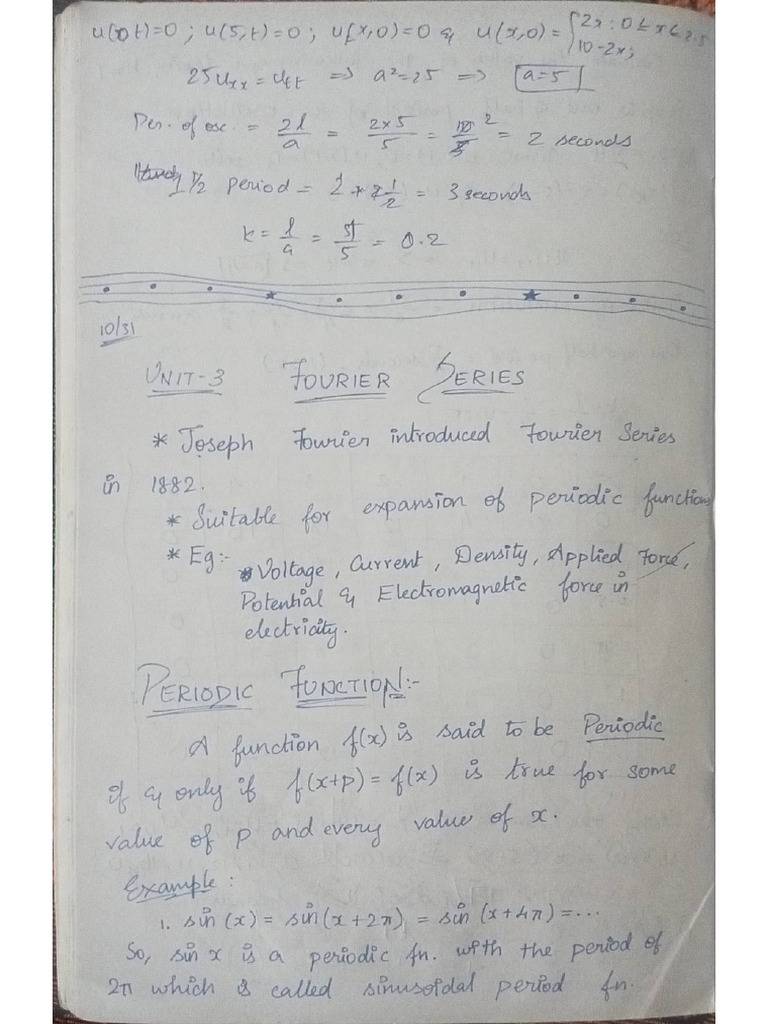 u(0,t)=0 ; u(5,t)=0 ; u(x,0)=0 & u(x,0)= {2x : 0 ≤ x ≤ 2.5
10-2x;
25uxx = utt => a²=25 => a=5
Per. of osc. = 2l/a = 2×5/5 = 10/5 2 = 2 seconds
1 1/2 period = = 3 seconds
k = l/a = /5 = 0.2
10/31
UNIT-3 FOURIER SERIES
* Joseph Fourier introduced Fourier Series
in 1882.
* Suitable for expansion of periodic functions
* Eg:- Voltage, Current, Density, Applied Force,
Potential & Electromagnetic force in
electricity.
PERIODIC FUNCTION:-
A function f(x) is said to be Periodic
if & only if f(x+p) = f(x) is true for some
value of p and every value of x.
Example :
1. sin (x) = sin(x+2π) = sin (x+4π) = ...
So, sin x is a periodic fn. with the period of
2π which is called sinusoidal period fn.